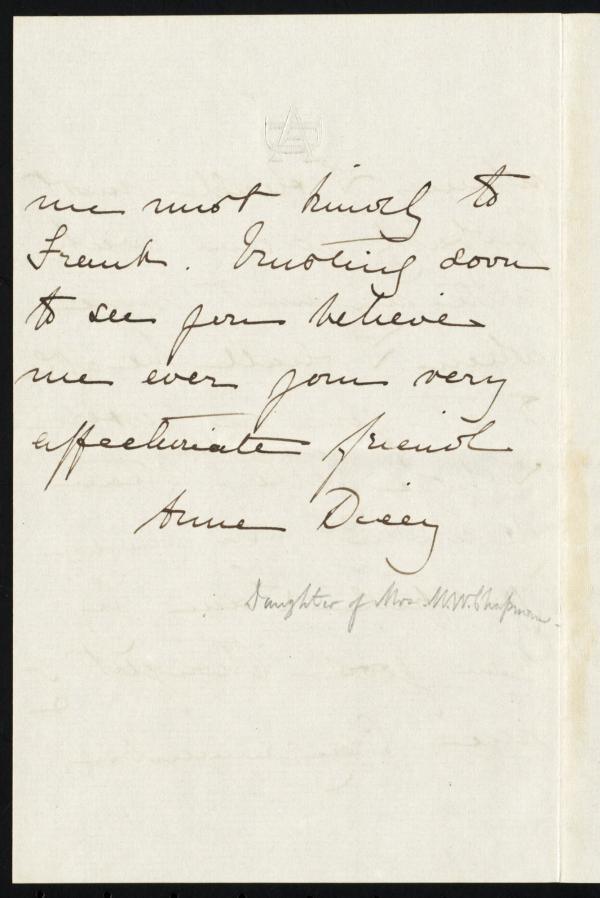 me most kindly to
Frank. Trusting soon
to see you believe
me ever your very
affectionate friend
Anne Dicey
Daughter of Mrs. M.W. Chapman.